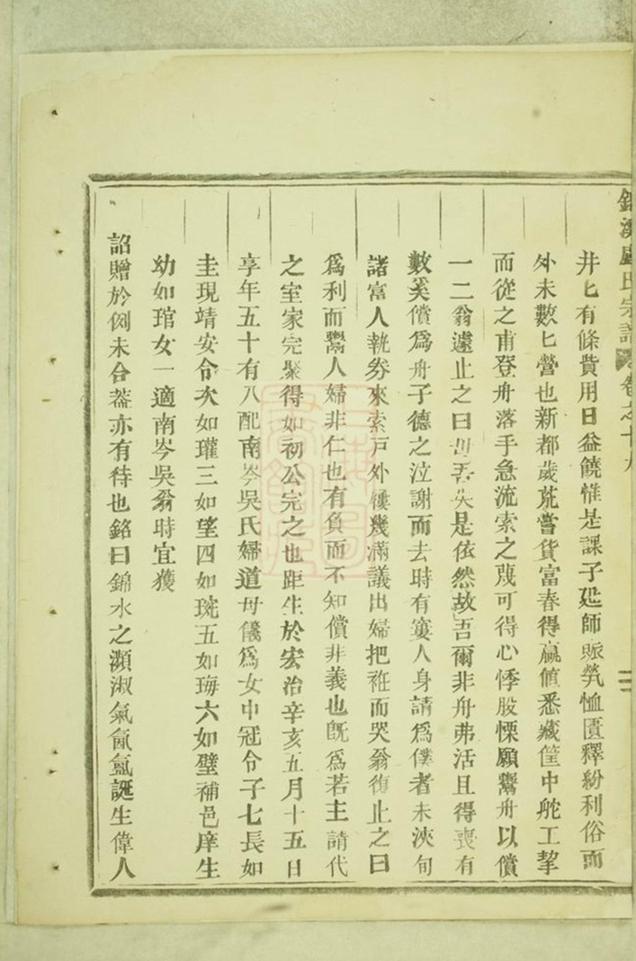 盧氏宗譜 卷之十九
井匕有條費用日益饒惟是課子延師賑煢恤匱釋紛利俗而
外未數匕營也新都歲荒嘗貨富春得贏值悉藏筐中舵工挈
而從之甫登舟落手急流索之蔑可得心悸股慄願鬻舟以償
一二翁遽止之曰吾失是依然故吾爾非舟弗活且得喪有
數奚償爲舟子德之泣謝而去時有窶人身請爲僕者未浹旬
諸富人執券來索戶外幾滿議出婦把袵而哭翁復止之曰
爲利而鬻人婦非仁也有負而不知償非義也旣爲若主請代
之室家完聚得如初公完之也距生於宏治辛亥五月十五日
享年五十有八配南岑吳氏婦道母儀爲女中冠令子七長如
圭現靖安令次如瓘三如望四如琬五如珻六如璧補邑庠生
幼如琯女一適南岑吳翁時宜獲
詔贈於例未合葢亦有待也銘曰錦水之瀕淑氣氤氲誕生偉人